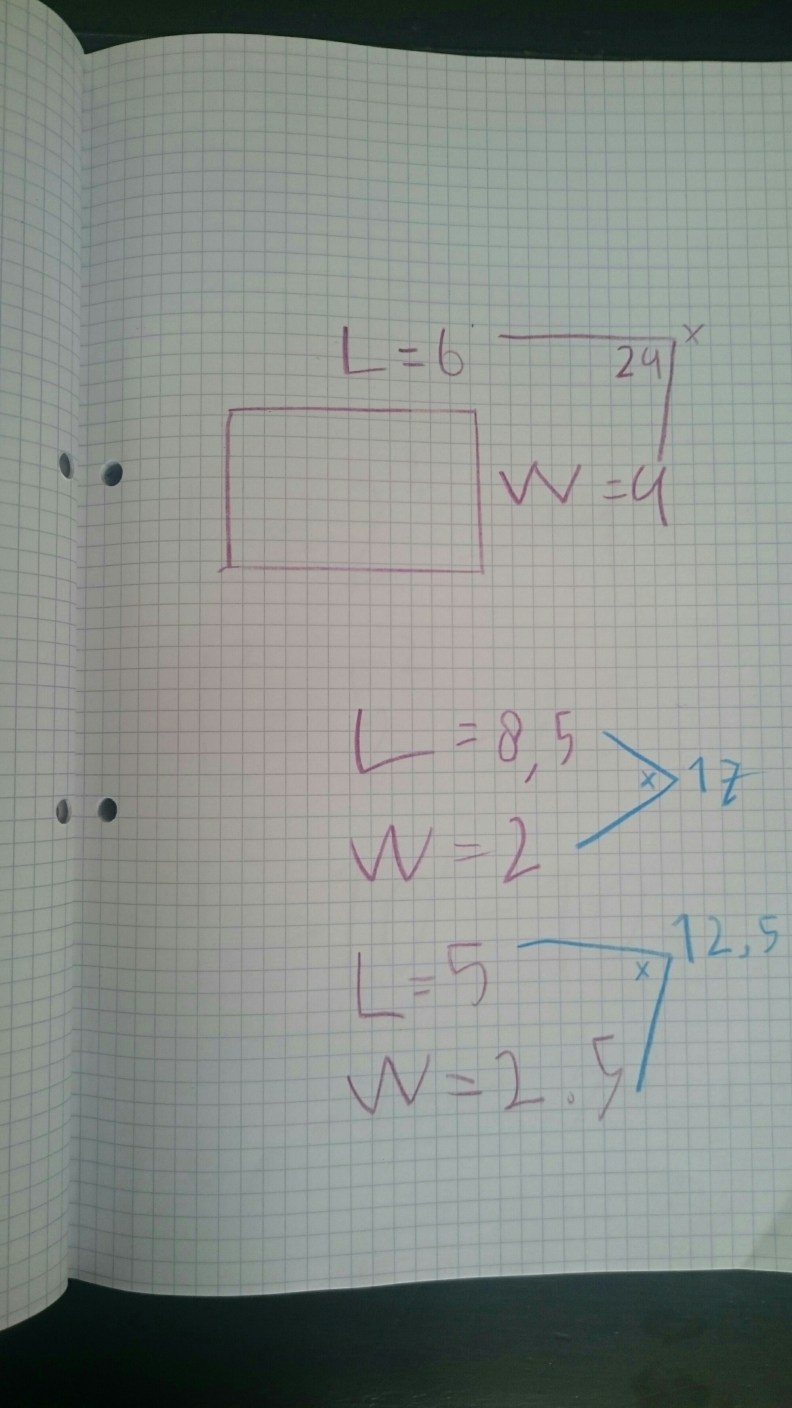 L = 6 x
24
W = 4
L = 8,5
x 17
W = 2
12,5
L = 5 x
W = 2.5